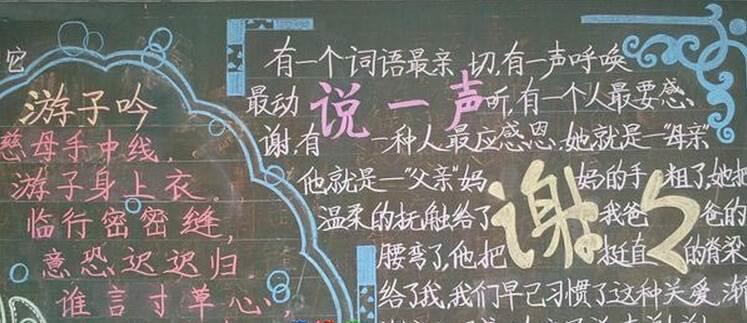 它
游子吟
慈母手中线,
游子身上衣。
临行密密缝,
意恐迟迟归
谁言寸草心,
有一个词语最亲切,有一声呼唤
最动 说一声 听,有一个人最要感
谢,有一种人最应感恩,她就是一“母亲”
他就是一“父亲”妈 妈的手粗了,她把
温柔的抚触给了 谢々 我爸爸的
腰弯了,他把 挺直的脊梁
给了我,我们早已习惯了这种关爱,渐